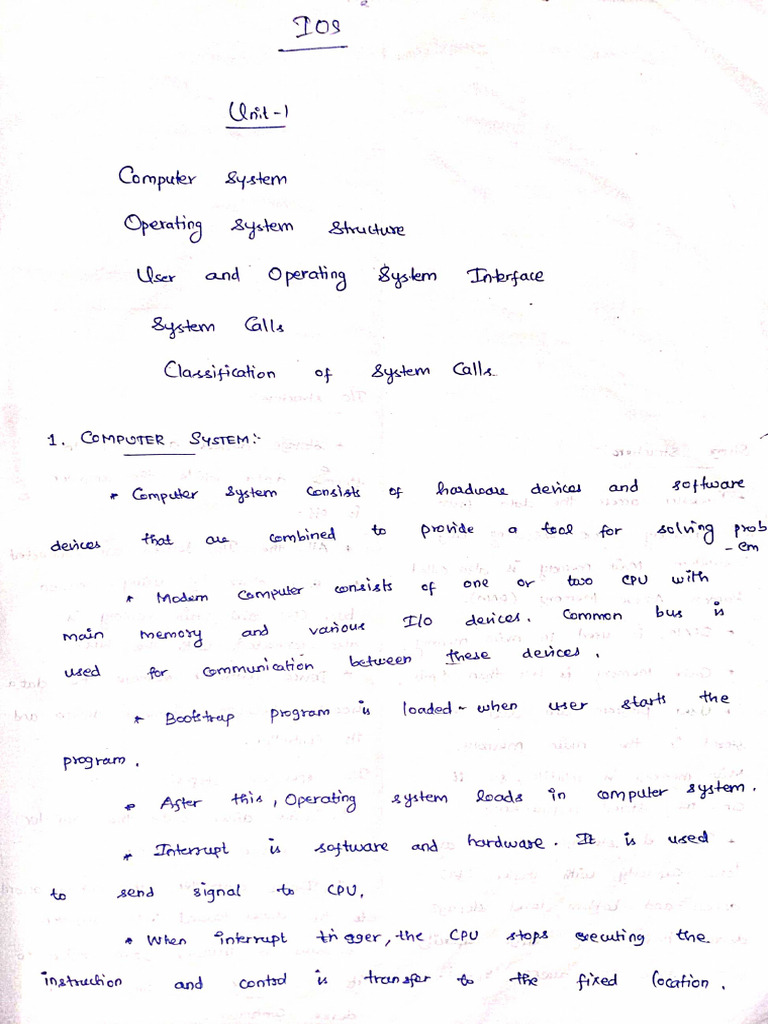 IOS
Unit-1
Computer System
Operating System Structure
User and Operating System Interface
System Calls
Classification of System Calls.
1. COMPUTER SYSTEM:-
* Computer system consists of hardware devices and software
devices that are combined to provide a tool for solving prob
-em
* Modern computer consists of one or two CPU with
main memory and various I/o devices. Common bus is
used for communication between these devices.
* Bootstrap program is loaded - when user starts the
program.
* After this, Operating system loads in computer system.
* Interrupt is software and hardware. It is used
to send signal to CPU.
* When interrupt trigger, the CPU stops executing the
instruction and control is transfer to the fixed location.